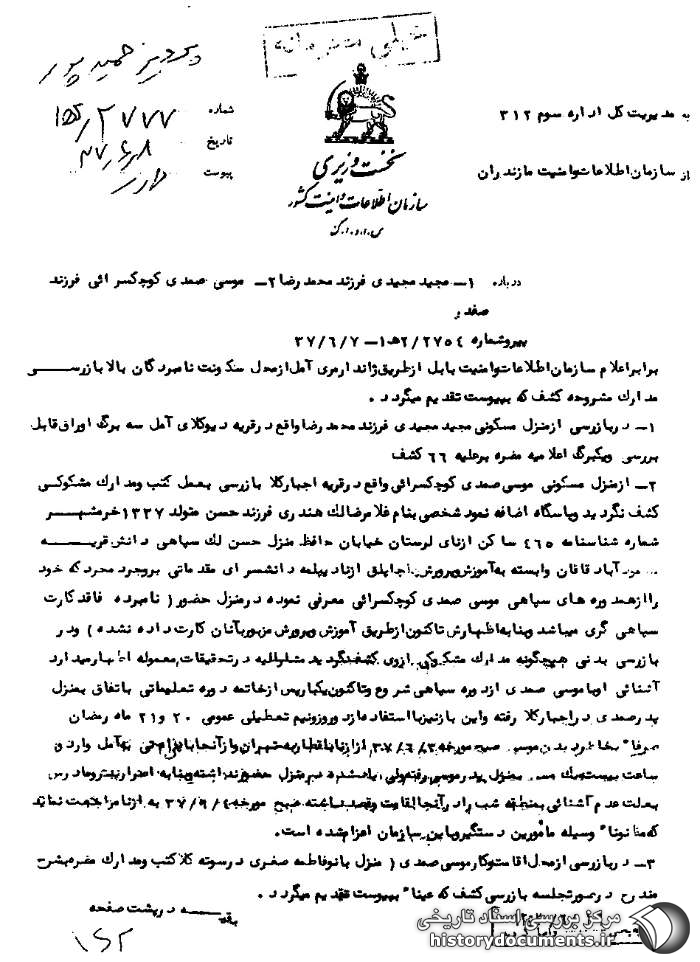 خیلی محرمانه
پرویز حمیدپور
به مدیریت کل اداره سوم ۳۱۲
شماره ۲۷۷۷
از سازمان اطلاعات وامنیت مازندران
تاریخ
پیوست
نخست وزیری
سازمان اطلاعات و امنیت کشور
س.ا.و.ا.ک
درباره ۱ـ مجید مجیدی فرزند محمد رضا ۲ـ موسی صمدی کوچکسرائی فرزند
صفدر
پیروشماره ۲/۲۷۵۴هـ۱ـ ۳۷/۶/۷
برابراعلام سازمان اطلاعات وامنیت بابل ازطریق ژاندارمری آمل ازمحل سکونت نامبردگان بالا بازرسی
مدارك مشروحه کشف که بپیوست تقدیم میگردد .
۱ـ دربازرسی ازمنزل مسکونی مجید مجیدی فرزند محمد رضا واقع درقریه دیوکلای آمل سه برگ اوراق قابل
بررسی ویکبرگ اعلامیه مضره برعلیه ۶۶ کشف
۲ـ ازمنزل مسکونی موسی صمدی کوچکسرائی واقع درقریه اجبارکلا بازرسی بعمل کتب ومدارك مشکوکی
کشف نگردید وپاسگاه اضافه نمود شخصی بنام غلامرضا لك هندری فرزند حسن متولد ۱۳۳۷ خرمشهر
شماره شناسنامه ۴۶۵ ساکن ازنای لرستان خیابان حافظ منزل حسن لك سپاهی دانش قریه
آباد قاقان وابسته به آموزش وپرورش جاپلق ازناد یپلمه دانشسرای مقدماتی بروجرد مجرد که خود
را ازهمدوره های سپاهی موسی صمدی کوچکسرائی معرفی نموده درمنزل حضور ( نامبرده فاقد کارت
سپاهی گری میباشد وبنا به اظهارش تاکنون ازطریق آموزش وپرورش مزبور بآنان کارت داده نشده ) ودر
بازرسی بدنی هیچگونه مدارك مشکوکی ازوی کشف نگردید مشارالیه درتحقیقات معموله اظهار میدارد
آشنائی اوبا موسی صمدی ازدوره سپاهی شروع وتاکنون یکبارپس ازخاتمه دوره تعلیماتی باتفاق بمنزل
پدر صمدی دراجبارکلا رفته واین بارنیزبا استفاده ازد وروزونیم تعطیلی عمومی ۲۰ و۲۱ ماه رمضان
صرفا" بخاطردیدن موسی صبح مورخه ۳۷/۶/۳ ازازنا باقطاربه تهران وازآنجا به آمل وارد و
ساعت بیست ویك بمنزل پدر موسی رفته ولی درمنزل حضورنداشته وبنا به اصرار پدرومادرش
بعلت عدم آشنائی بمنطقه شب را درآنجا اقامت وقصد داشته صبح مورخه ۳۷/۶/۴ به ازنا مراجعت نماید
که وسیله مأمورین دستگیر وباین سازمان اعزام شده است.
۳ـ دربازرسی ازمحل اقامت وکارموسی صمدی ( منزل بانوفاطمه صفری درسوته کلا کتب ومدارك مضره بشرح
مندرج درصورتجلسه بازرسی کشف که عینا" بپیوست تقدیم میگردد .
بقیه درپشت صفحه
مرکز بررسی اسناد تاریخی
historydocuments.ir